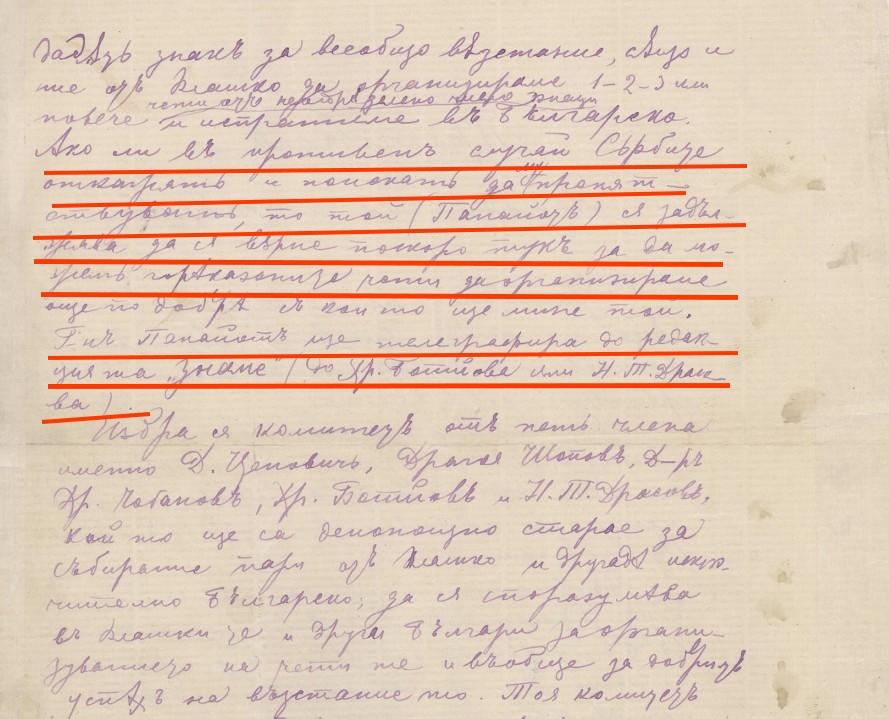 дадѫтъ знакъ за всеобщо вѫзстание, сѫщо и
ние отъ Влашко да организираме 1-2-3 или
чети отъ неопредѣлено число юнаци
повече и испратиме въ България.
Ако ли въ противенъ случай Сърбите
откажатъ и поискатъ да му препят-
ствуватъ, то той (Панайотъ) ся задъл-
жява да ся върне поскоро тукъ за да мо-
жемъ горѣказаните чети да организираме
още по добрѣ съ които ще мине той.
Г-нъ Панайотъ ще телеграфира до редак-
цията „Знаме" (до Хр. Ботйова или Н. Т. Драсо-
ва).
Избра ся комитетъ отъ петь члена
именно Д. Ценовичь, Драгоя Шоповъ, Д-ръ
Хр. Чобановъ, Хр. Ботйовъ и Н. Т. Драсовъ,
който ще са денонощно старае за
събирание пари отъ Влашко и другадѣ исклю-
чително Българско; да ся споразумѣва
въ Влашките и други Българи за органи-
зуванието на чети те и въобще за добрийтъ
успѣхъ на възстание то. Тоя комитетъ